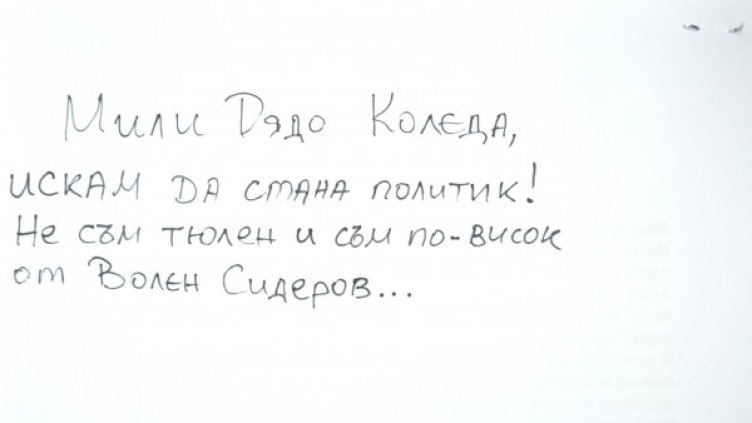 Мили Дядо Коледа,
искам да стана политик!
Не съм тюлен и съм по-висок
от Волен Сидеров...